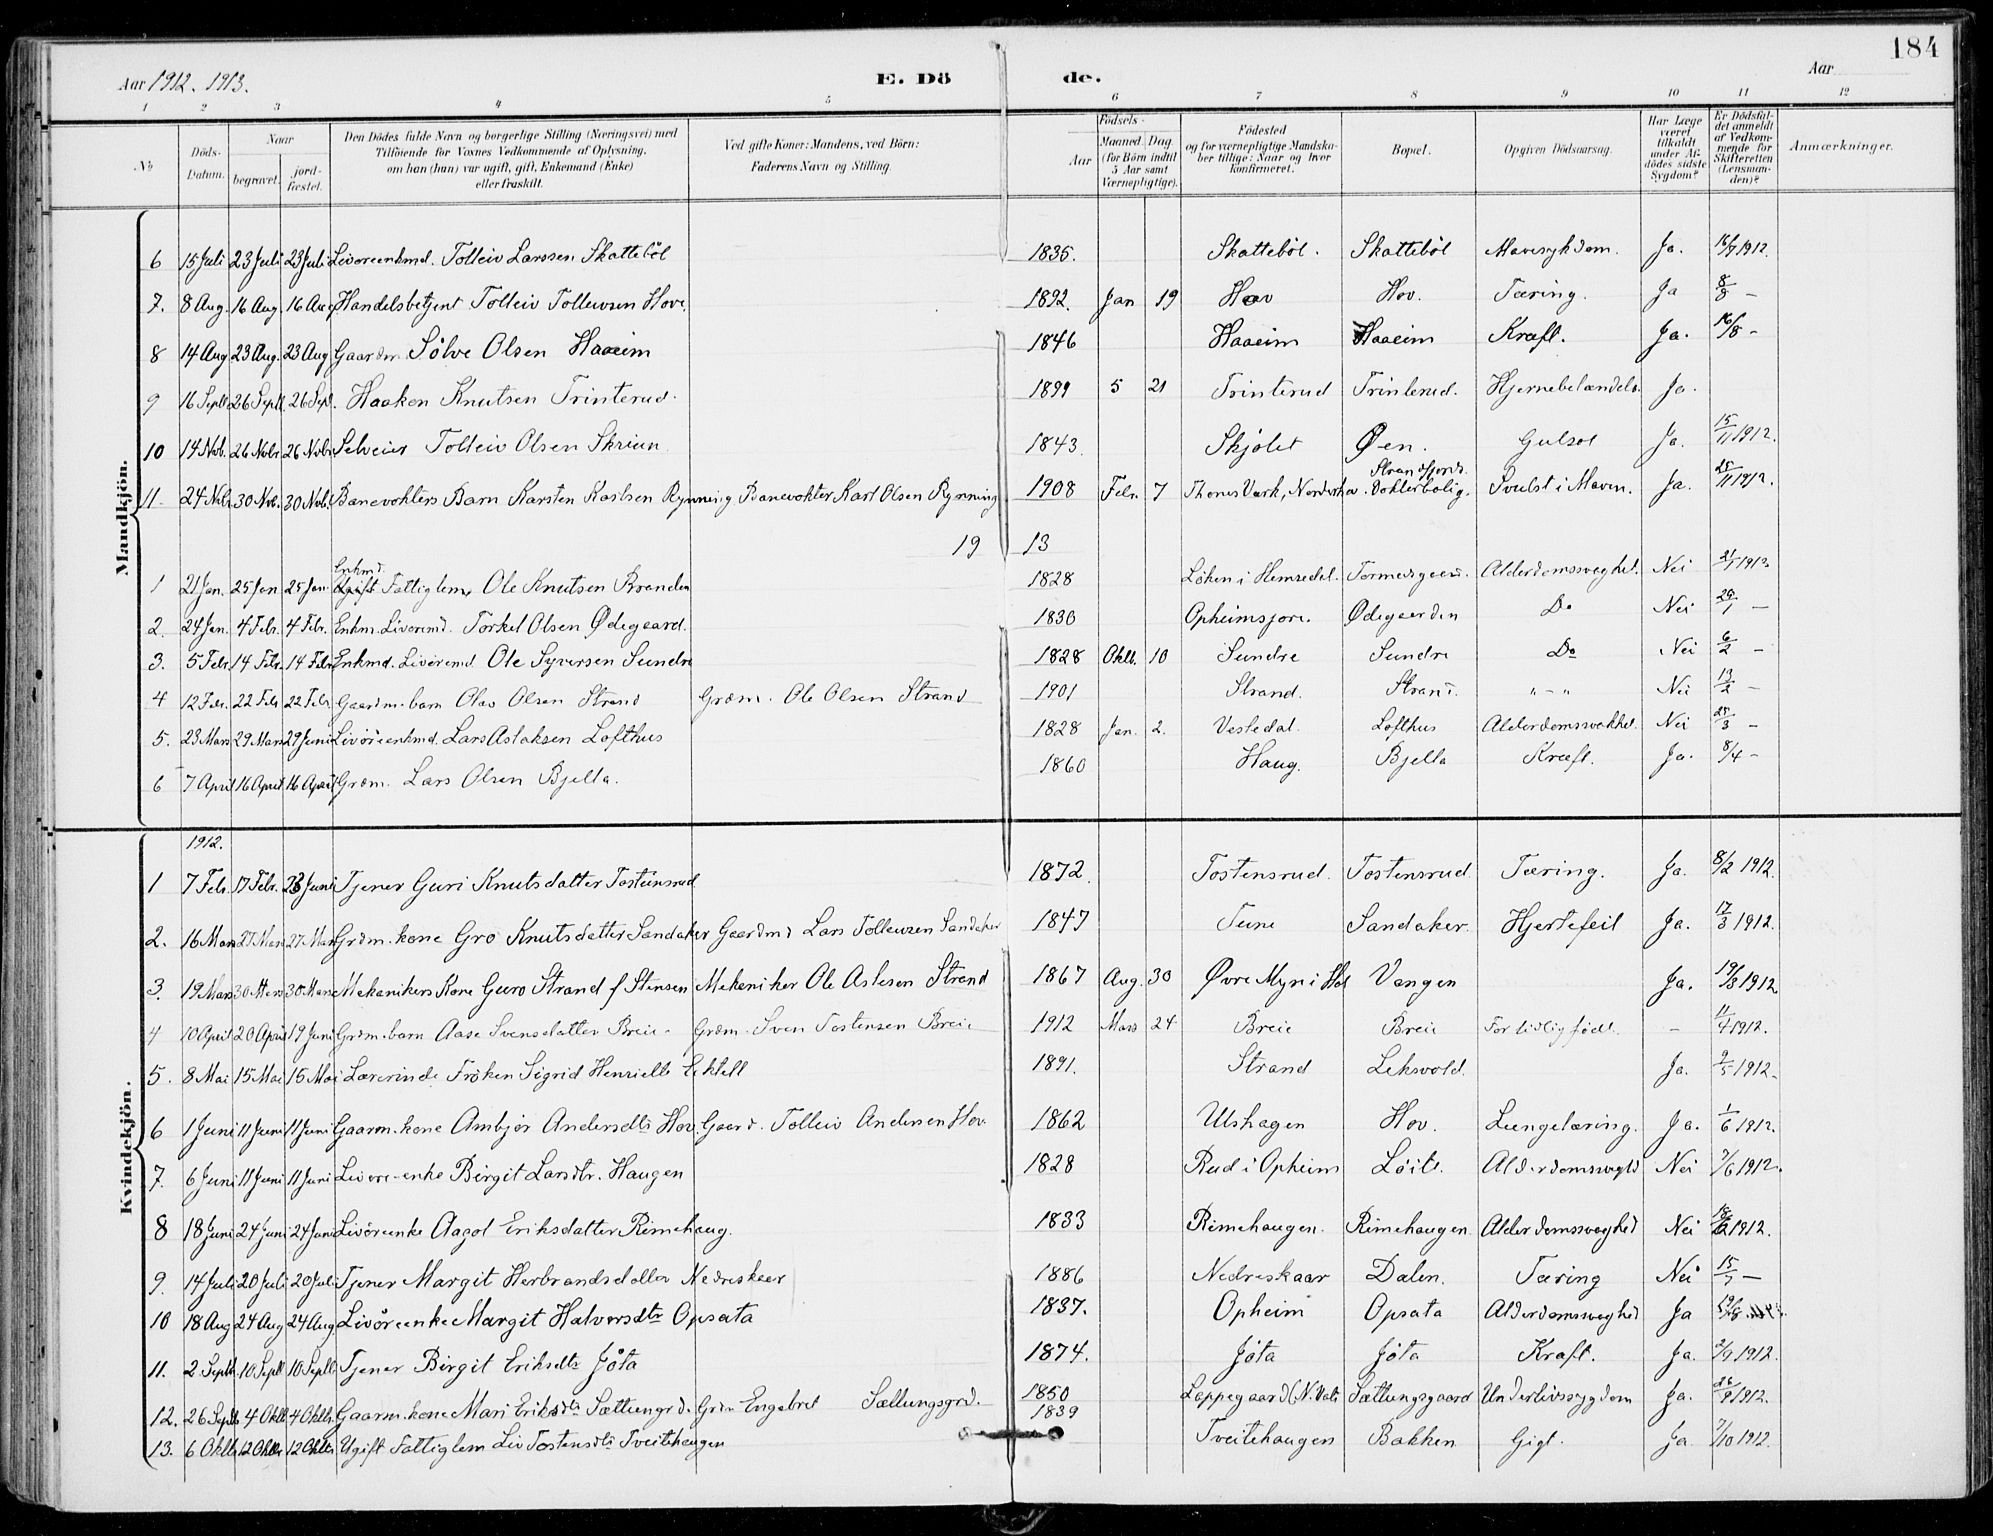 184
Aar 1912. 1913.
E. Dö de.
Aar
1 2 3 4 5 6 7 8 9 10 11 12
No
Döds-Datum.
Naar
begravet.
jord-fæstet.
Den Dödes fulde Navn og borgerlige Stilling (Næringsvei) med
Tilföiende for Voxnes Vedkommende af Oplysning,
om han (hun) var ugift, gift, Enkemand (Enke)
eller fraskilt.
Ved gifte Koner: Mandens, ved Börn:
Faderens Navn og Stilling.
Födsels-
Aar
Maaned.
Dag.
(for Börn indtil
5 Aar samt
Værnepligtige).
Födested
og for værnepligtige Mandska-
ber tillige: Naar og hvor
konfirmeret.
Bopæl.
Opgiven Dödsaarsag.
Har Læge
været
tilkaldt
under Af-
dödes sidste
Sygdom?
Er Dödsfal-
det anmeldt
af Vedkom-
mende for
Skifteretten
(Lensman-
den)?
Anmærkninger.
Mandkjön.
6 15 Juli 23 Juli 23 Juli Livöreenkmd. Tolleiv Larssen Skattebøl 1835. Skattebøl. Skattebøl Mavesykdom. Ja. 16/7 1912.
7. 8 Aug. 16 Aug. 16 Aug Handelsbetjent Tolleiv Tolleivsen Hove. 1892. Jan 19 Hov Hov. Tæring. Ja 8/8 –
8 14 Aug 23 Aug. 23 Aug Gaardm. Sölve Olsen Haaeim 1846 Haaeim Haaeim Kræft. Ja. 16/8 –
9 16 Septb. 26 Septb. 26 Sept. Haaken Knutsen Trinterud. 1899 5 21 Trinterud Trinterud. Hjernebetændels. Ja.
10 14 Nvb. 26 Nvbr. 26 Nvbr Selveier Tolleiv Olsen Skriun 1843 Skjølet Øen. Gulsot Ja. 15/11 1912.
11 24 Nvbr 30 Nvb. 30 Nvb. Banevokters Barn Karsten Karlsen Rynning Banevokter Karl Olsen Rynning 1908 Febr. 7 Thones Værk, Norderhov. Strandfjords. Vokterbolig. Svulst i Maven. Ja. 25/11 1912.
1913
1 21 Jan. 25 Jan 25 Jan. Enkmd. Fattiglem Ole Knutsen Branden 1828 Løken i Hemsedal. Tormodsgaard. Alderdomssvaghet. Nei 21/1 1913
2. 24 Jan. 4 Febr. 4 Febr. Enkm. Livöremd. Torkel Olsen Ødegaard. 1830 Opheimsjore. Ødegaarden Do Nei 29/1 –
3. 5 Febr 14 Febr. 14 Febr Enkmd. Livöremd. Ole Syversen Sundre 1828 Oktb. 10 Sundre Sundre Do Nei 6/2 –
4 12 Febr. 22 Febr 22 Febr. Gaardm. barn Olav Olsen Strand Grdm. Ole Olsen Strand 1901 Strand. Strand. " – " Nei 13/2 –
5. 23 Mars 29 Mars 29 Juni Livöreenkmd. Lars Aslaksen Lofthus 1828 Jan. 2. Vestedal. Lofthus Alderdomssvakhet. Nei 25/3 –
6 7 April 16 April 16 April Grdm. Lars Olsen Bjella. 1860 Haug. Bjella Kræft. Ja. 8/4 –
Kvindekjön.
1912.
1 7 Febr. 17 Febr. 23 Juni Tjener Guri Knutsdatter Tosteinsrud 1872. Tostensrud. Tostensrud. Tæring. Ja. 8/2 1912.
2. 16 Mars 27 Mars 27 Mars Grdm. kone Gro Knutsdatter Sandaker Gaardmd Lars Tolleivsen Sandaker 1847 Tune Sandaker Hjertefeil Ja. 17/3 1912.
3. 19 Mars 30 Mars 30 Mars Mekanikers Kone Guro Strand f Stensen Mekaniker Ole Aslesen Strand 1867 Aug. 30 Øvre Myn i Hol Vangen Ja. 19/3 1912.
4 10 April 20 April 19 Juni Grdm. barn Aase Svensdatter Breie Grdm. Sven Tostensen Breie 1912 Mars 24 Breie Breie For tidlig født. – 11/4 1912.
5. 8 Mai 15 Mai 15 Mai Lærerinde Fröken Sigrid Henriette 1891. Strand Leksvold. Ja. 9/5 1912.
6 1 Juni 11 Juni 11 Juni Gaarm. kone Ambjør Andersdtr Hov. Gaard. Tolleiv Andersen Hov. 1862 Ulshagen Hov. Lungetæring. Ja. 1/6 1912.
7. 6 Juni 11 Juni 11 Juni Livöre-enke Birgit Larsdtr. Haugen 1828 Rud i Opheim Löite. Alderdomssvaghd Nei 7/6 1912.
8 18 Juni 24 Juni 24 Juni Livöreenke Aagot Eriksdatter Rimehaug. 1833 Rimehaugen. Rimehaugen Alderdomssvaghed Nei 18/6 1912.
9. 14 Juli 20 Juli 20 Juli Tjener Margit Herbrandsdatter Nedreskaar 1886 Nedreskaar Dalen. Tæring Nei 15/7 –
10 18 Aug 24 Aug 24 Aug. Livöreenke Margit Halvorsdtr Opsata 1837. Opheim Opsata Alderdomssvaghed Ja 19/8
11. 2 Septb. 10 Septb 10 Septb. Tjener Birgit Eriksdtr Jöta 1874. Jöta Jöta Kræft. Ja. 3/9 1912.
12. 26 Septb 4 Oktb 4 Oktbr. Gaarm. kone Mari Eriksdtr Sætlungrd. Grdm Engebret Sætlungsgrd. 1850 Loppegaard (N. Val) Sætlungsgaard Underlivssygdom Ja. 26/9 1912.
13. 6 Oktb 12 Oktbr 12 Oktbr Ugift Fattiglem Liv Tostensdtr Tveitehaugen 1839 Tveitehaugen Bakken Gigt. Ja. 7/10 1912.